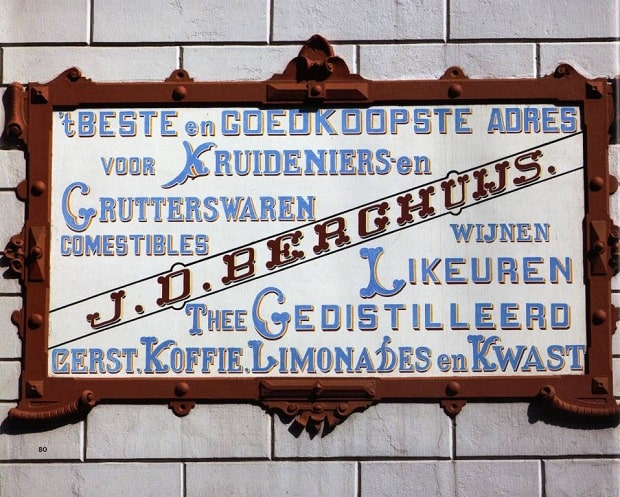 't BESTE en GOEDKOOPSTE ADRES
VOOR KRUIDENIERS-en
GRUTTERSWAREN
COMESTIBLES
J.D. BERGHUIJS.
WIJNEN
LIKEUREN
THEE GEDISTILLEERD
GERST, KOFFIE, LIMONADES en KWAST
80